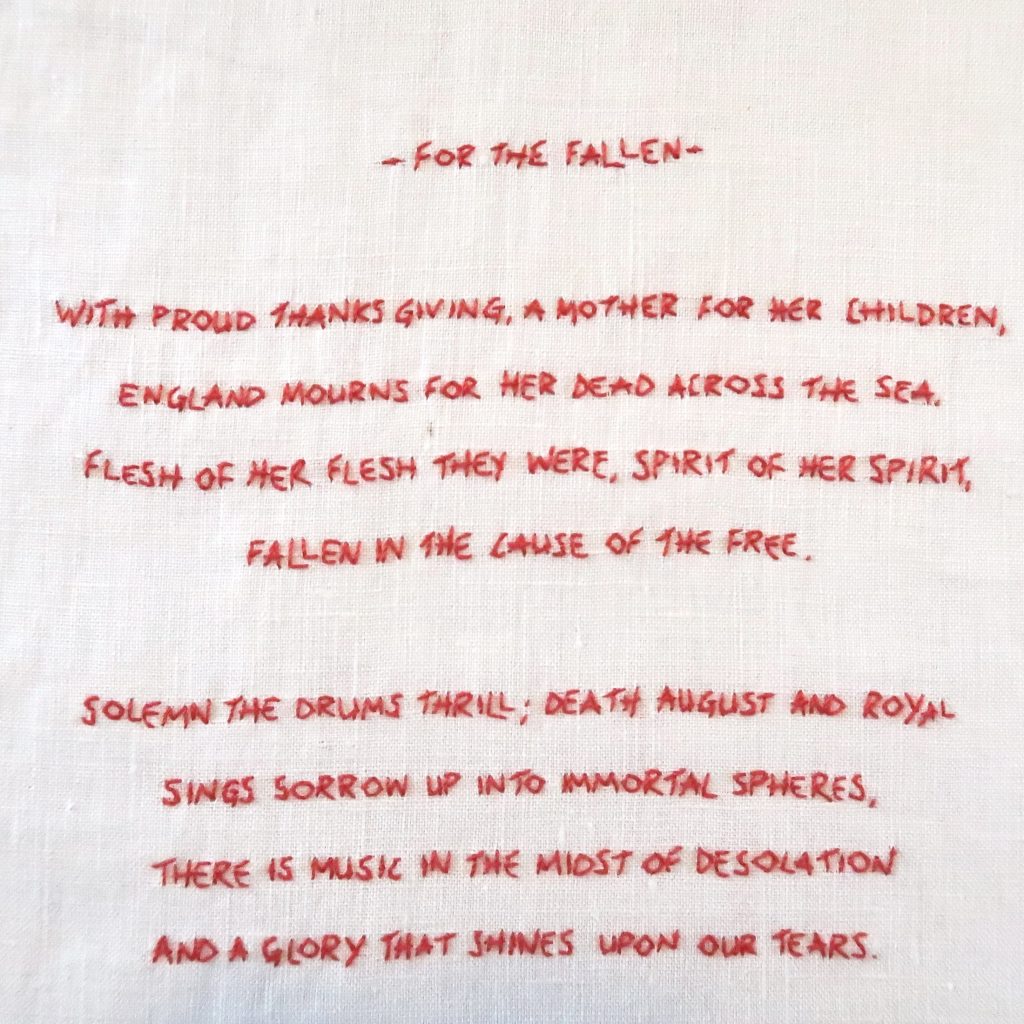 - FOR THE FALLEN -
WITH PROUD THANKSGIVING, A MOTHER FOR HER CHILDREN,
ENGLAND MOURNS FOR HER DEAD ACROSS THE SEA.
FLESH OF HER FLESH THEY WERE, SPIRIT OF HER SPIRIT,
FALLEN IN THE CAUSE OF THE FREE.
SOLEMN THE DRUMS THRILL; DEATH AUGUST AND ROYAL
SINGS SORROW UP INTO IMMORTAL SPHERES,
THERE IS MUSIC IN THE MIDST OF DESOLATION
AND A GLORY THAT SHINES UPON OUR TEARS.